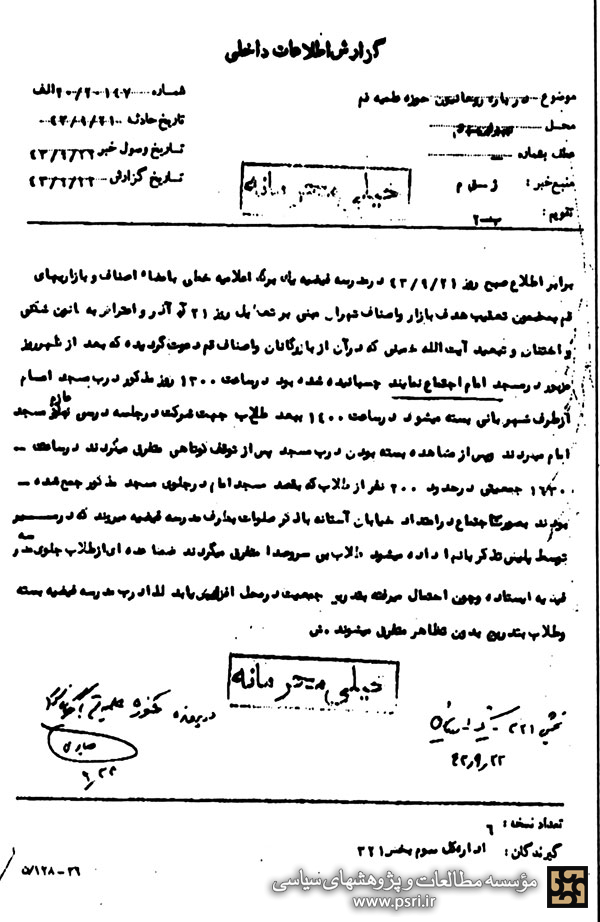 گزارش اطلاعات داخلی
موضوع در باره روحانیون حوزه علمیه قم
شماره ۲۰/۲۰۱۴۷ الف
محل
تاریخ حادثه ۴۳/۹/۲۱
عطف بشماره
تاریخ وصول خبر ۴۳/۹/۲۲
منبع خبر :
تاریخ گزارش ۴۳/۹/۲۲
تقویم : ب - ۲
خیلی محرمانه
برابر اطلاع صبح روز ۴۳/۹/۲۱ در مدرسه فیضیه یک برگ اعلامیه خطی بامضاء اصناف و بازاریهای
قم بمضمون تعقیب هدف بازار واصناف تهران مبنی بر تعطیل روز ۲۱ آذر و اعتراض به
و اختناق و تبعید آیت الله خمینی که در آن از بازرگانان واصناف قم دعوت گردیده که بعد از ظهر روز
مزبور در مسجد امام اجتماع نمایند چسبانیده شده بود در ساعت ۱۳۰۰ روز مذکور درب مسجد امام
از طرف شهربانی بسته میشود در ساعت ۱۴۰۰ ببعد طلاب جهت شرکت در جلسه درس مسجد
امام میروند وپس از مشاهده بسته بودن درب مسجد پس از توقف کوتاهی متفرق میگردند در ساعت ــ
۱۶۳۰ جمعیتی در حدود ۲۰۰ نفر از طلاب که بقصد مسجد امام در جلوی مسجد مذکور جمع شده ــ
بودند بصورت اجتماع در امتداد خیابان آستانه با ذکر صلوات بطرف مدرسه فیضیه میروند که در مسیر
توسط پلیس تذکر بآنها داده میشود طلاب بی سروصدا متفرق میگردند ضمنا عده ای از طلاب جلوی مدرسه
فیضیه ایستاده وچون احتمال میرفته بتدریج جمعیت در محل افزایش یابد لذا درب مدرسه فیضیه بسته
وطلاب بتدریج بدون تظاهر متفرق میشوند .
خیلی محرمانه
بخش ۳۲۱
۴۳٫۹٫۲۲
در پرونده حوزه علمیه قم
صابری
۹٫۲۴
تعداد نسخه : ۶
گیرندگان : اداره کل سوم بخش ۳۲۱
۵/۱۲۸-۳۶
مؤسسه مطالعات و پژوهشهای سیاسی
www.psri.ir